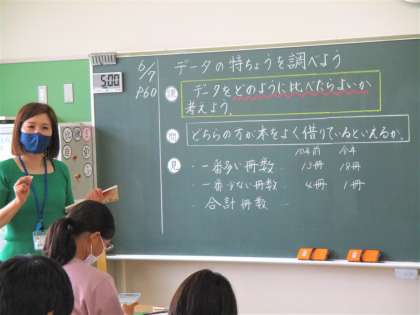 6/7
P60
5:00
データの特ちょうを調べよう
データをどのように比べたらよいか
考えよう。
どちらの方が本をよく借りているといえるか。
見
10年前 今年
・一番多い冊数 - 13冊 18冊
・一番少ない冊数 - 4冊 1冊
・合計冊数 -